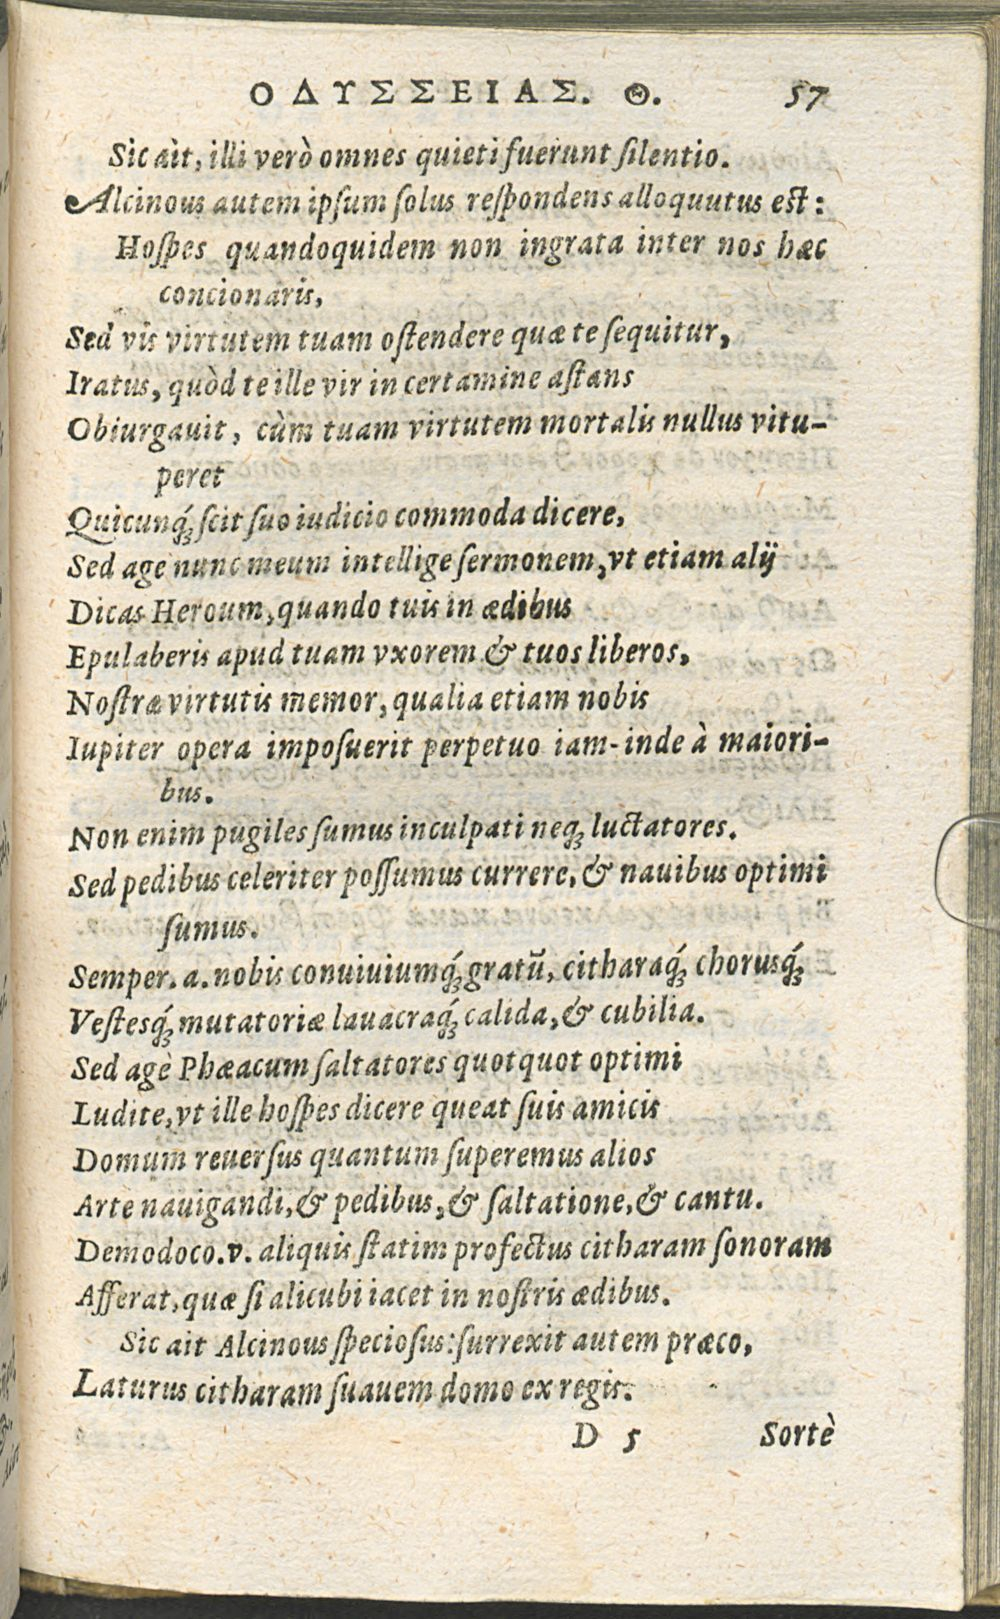 ΟΔΥΣΣΕΙΑΣ. Θ. 57
Sic ait, illi verò omnes quieti fuerunt ſilentio.
Alcinous autem ipſum ſolus reſpondens alloquutus est:
Hoſpes quandoquidem non ingrata inter nos hæc
concionaris,
Sed vis virtutem tuam oſtendere quæ te ſequitur,
Iratus, quòd te ille vir in certamine aſtans
Obiurgauit, cùm tuam virtutem mortalis nullus vitu-
peret
Quicunq́; ſcit ſuo iudicio commoda dicere,
Sed age nunc meum intellige ſermonem, vt etiam alij
Dicas Heroum, quando tuis in ædibus
Epulaberis apud tuam vxorem & tuos liberos,
Noſtræ virtutis memor, qualia etiam nobis
Iupiter opera impoſuerit perpetuo iam-inde à maiori-
bus.
Non enim pugiles ſumus inculpati neq; luctatores.
Sed pedibus celeriter poſſumus currere, & nauibus optimi
ſumus.
Semper. a. nobis conuiuiumq́; gratū, citharaq́; chorusq́;
Veſtesq́; mutatoriæ lauacraq́; calida, & cubilia.
Sed age Phæacum ſaltatores quotquot optimi
Ludite, vt ille hoſpes dicere queat ſuis amicis
Domum reuerſus quantum ſuperemus alios
Arte nauigandi, & pedibus, & ſaltatione, & cantu.
Demodoco. v. aliquis ſtatim profectus citharam ſonoram
Afferat, quæ ſi alicubi iacet in noſtris ædibus.
Sic ait Alcinous ſpecioſus: ſurrexit autem præco,
Laturus citharam ſuauem domo ex regis.
D 5 Sortè